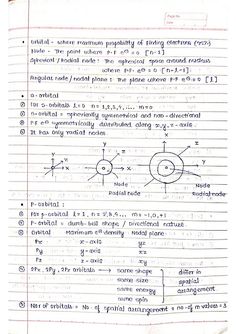 Page No.
Date
• Orbital - where maximum propability of finding electrons (90%)
Node - The point where P.F. e⊖ = 0 [n-1]
Spherical / Radial node : The spherical space around nucleus
where P.F. e⊖ = 0 [n-l-1].
Angular node / nodal plane : The plane where P.F e⊖ = 0 [l]
• s-orbital
① for s-orbitals l = 0 n = 1,2,3,4,... m = 0
② s-orbital = spherically symmetrical and non-directional
③ P.F e⊖ symmetrically distributed along x,y,z-axis.
④ It has only radial nodes.
Y Z X
Node
Radial node
Node
Radial node
• P-orbital :
① For p-orbital l = 1, n = 2,3,4... m = -1,0,+1
② P-orbital = dumb-bell shape / Directional nature.
③ Orbital Maximum e⊖ density Nodal plane
Px x-axis yz
Py y-axis xz
Pz z-axis xy
④ 2Px, 2Py, 2Pz orbitals → same shape differ in
same size spatial
same energy arrangement
same spin
⑤ No. of orbitals = No. of spatial arrangement = no. of m values = 3